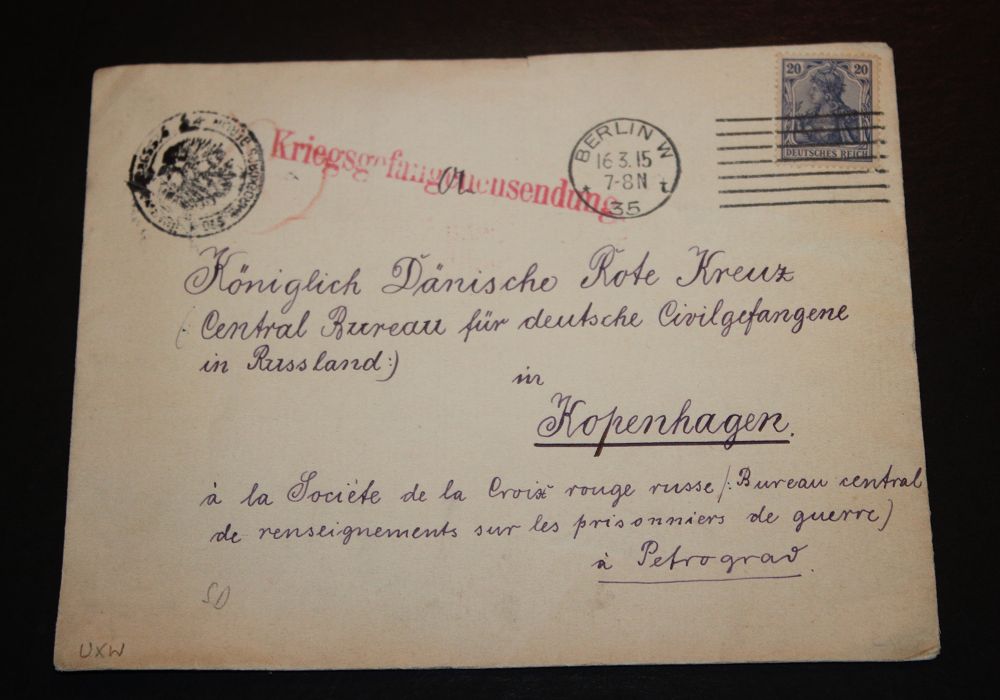 20 20
DEUTSCHES REICH
BERLIN W
16.3.15
7-8N
35
Kriegsgefangenensendung
Königlich Dänische Rote Kreuz
(Central Bureau für deutsche Civilgefangene
in Russland:)
in
Kopenhagen.
à la Société de la Croix rouge russe /: Bureau central
de renseignements sur les prisonniers de guerre)
à Petrograd.
UXW